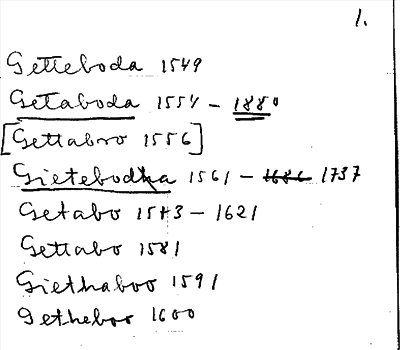 1.
Getteboda 1549
Getaboda 1554 - 1880
[Gettabro 1556]
Gietebodha 1561 - 1686 1737
Getabo 1573 - 1621
Gettabo 1581
Giethaboo 1591
Getheboo 1600